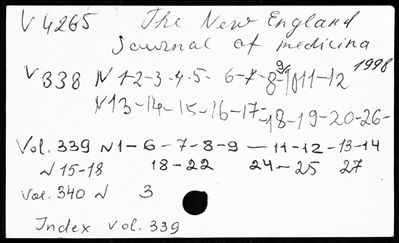 V 4265 The New England
Journal of medicina
V 338 N 1-2-3-4-5- 6-7-8-9-10 11-12 1998
N 13-14-15-16-17-18-19-20-26-
Vol. 339 N 1-6-7-8-9-11-12-13-14
N 15-18 18-22 24-25 27
Vol. 340 N 3
Index vol. 339